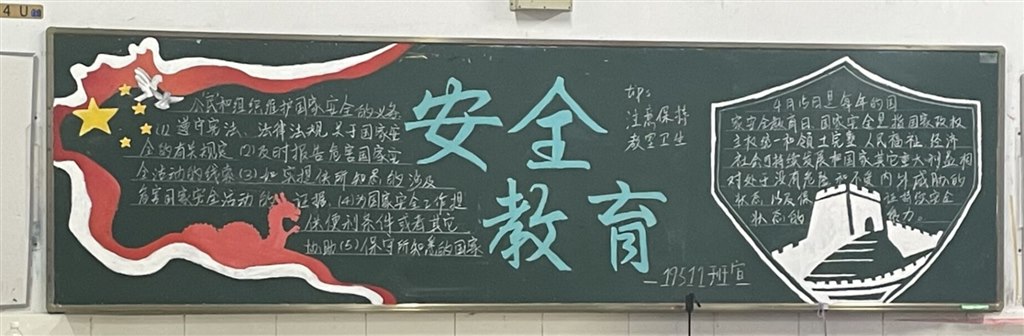 4 U
人民和组织维护国家安全的义务
(1)遵守宪法、法律法规关于国家安
全的有关规定(2)及时报告危害国家安
全活动的线索(3)如实提供所知悉的涉及
危害国家安全活动的证据(4)为国家安全工作提
供便利条件或者其它
协助(5)保守所知悉的国家
安全
教育
tips:
注意保持
教室卫生
19511班宣
4月15日是每年的国
家安全教育日,国家安全是指国家政权
主权统一和领土完整 人民福祉 经济
社会可持续发展和国家其它重大利益相
对处于没有危险和不受内外威胁的
状态 以及保 证持续安全
状态的 能力。